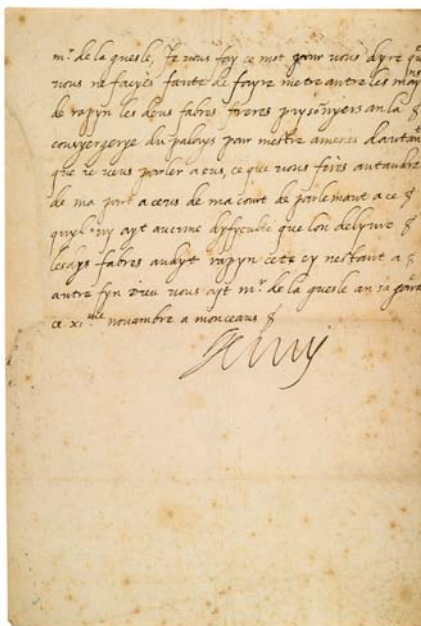 mr de la guesle, Je vous fay ce mot pour vous dyre que
vous ne facyès faute de fayre metre antre les mayns
de rapyn les deus fabres freres prysonyers an la
consyergerye du palays pour mestre amenés dautant
que ie veus parler a eus, ce que vous ferés antandre
de ma part a ceus de ma court de parlemant a ce
quyl ny ayt aucune dyfyculté que lon delyvre
lesdys fabres audyt rapyn cete cy nestant a
autre fyn dieu vous ayt mr de la guesle an sa garde
ce xime novambre a monceaus
Henry